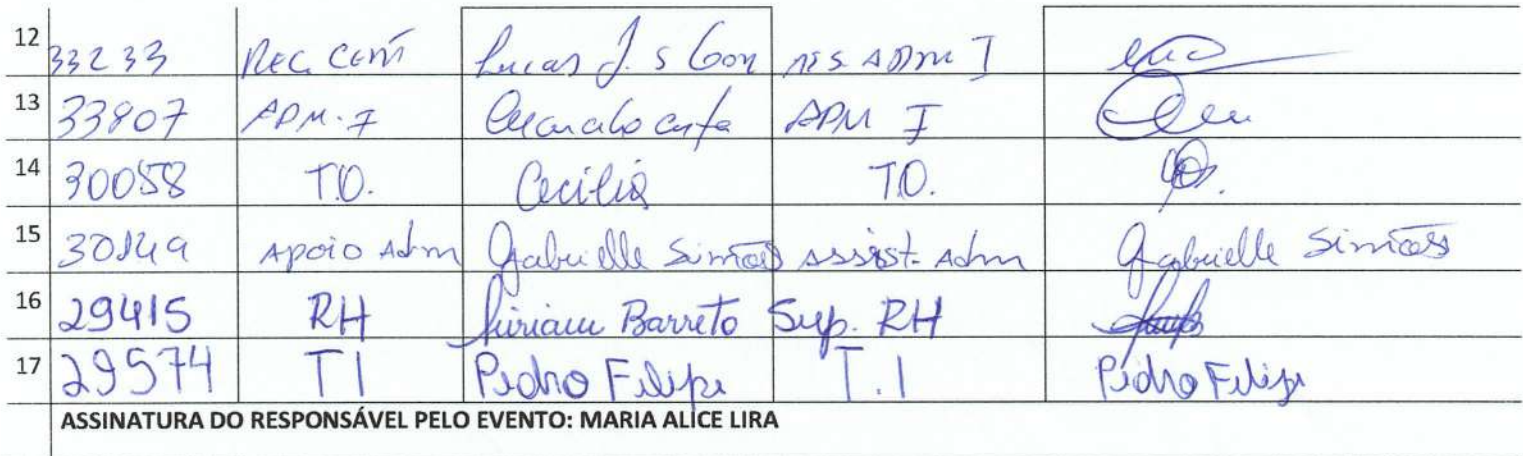 12 33233 Rec. Cent Lucas J. S Ass ADM I
13 33807 ADM. I ADM I
14 30058 T.O. Cecília T.O.
15 30149 Apoio Adm Gabrielle Simões Assist. Adm Gabrielle Simões
16 29415 RH Barreto Sup. RH
17 29574 TI Pedro Felipe T.I Pedro Felipe
ASSINATURA DO RESPONSÁVEL PELO EVENTO: MARIA ALICE LIRA